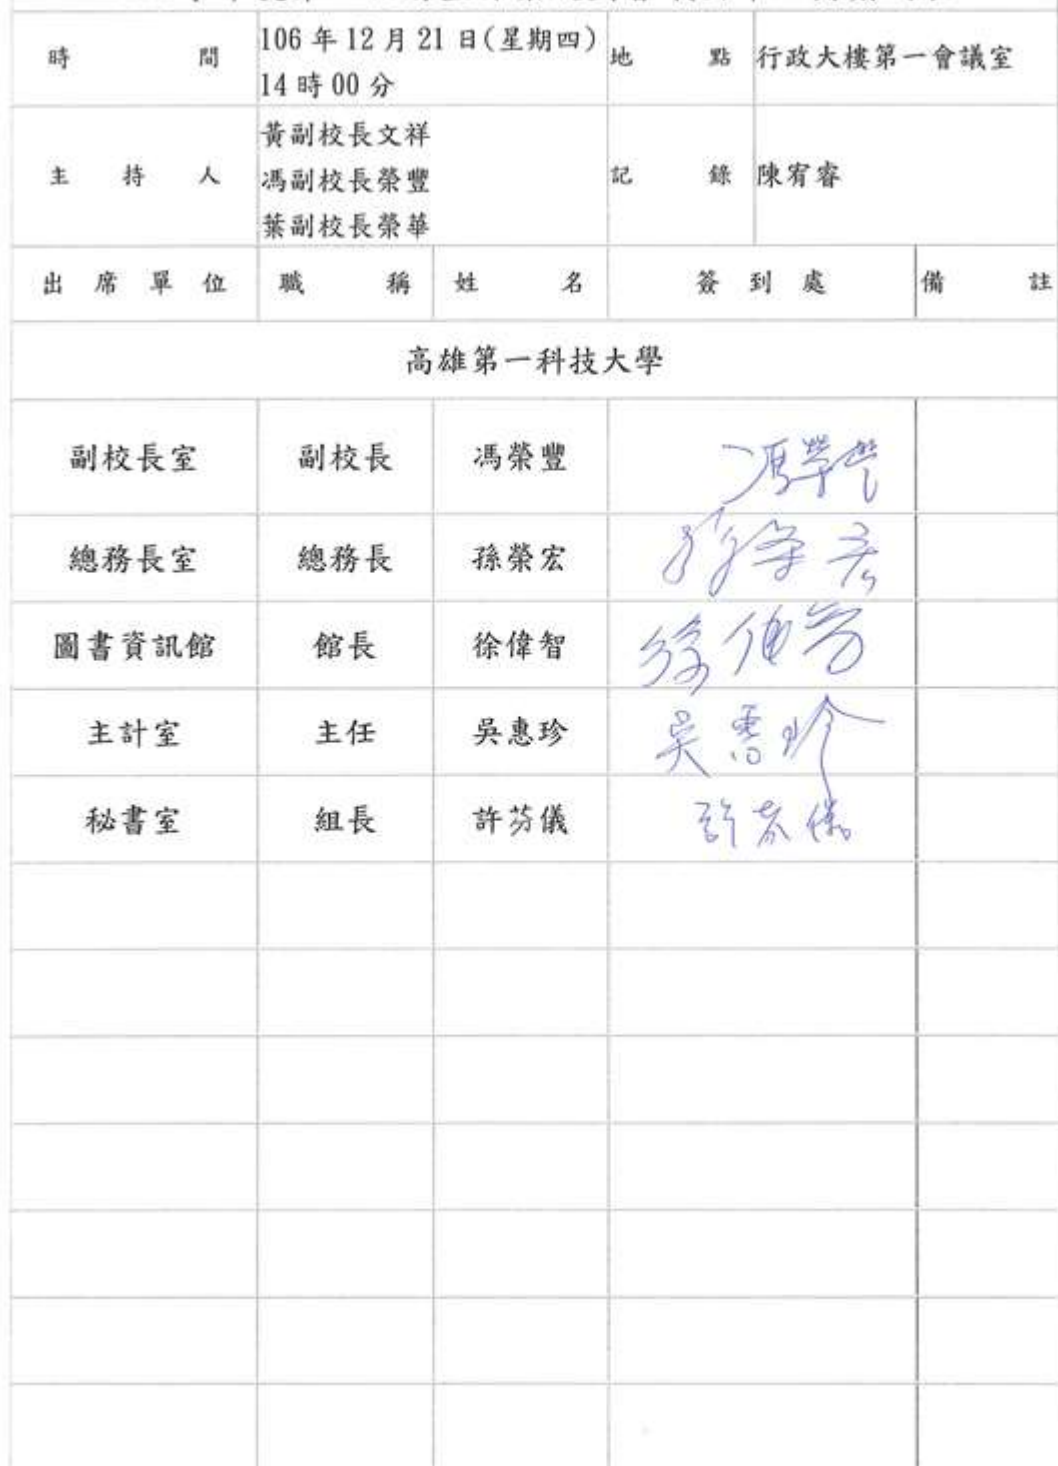 時 間 106 年 12 月 21 日(星期四) 14 時 00 分 地 點 行政大樓第一會議室
主 持 人 黃副校長文祥 馮副校長榮豐 葉副校長榮華 記 錄 陳宥睿
出 席 單 位 職 稱 姓 名 簽 到 處 備 註
高雄第一科技大學
副校長室 副校長 馮榮豐 馮榮豐
總務長室 總務長 孫榮宏 孫榮宏
圖書資訊館 館長 徐偉智 徐偉智
主計室 主任 吳惠珍 吳惠珍
秘書室 組長 許芬儀 許芬儀